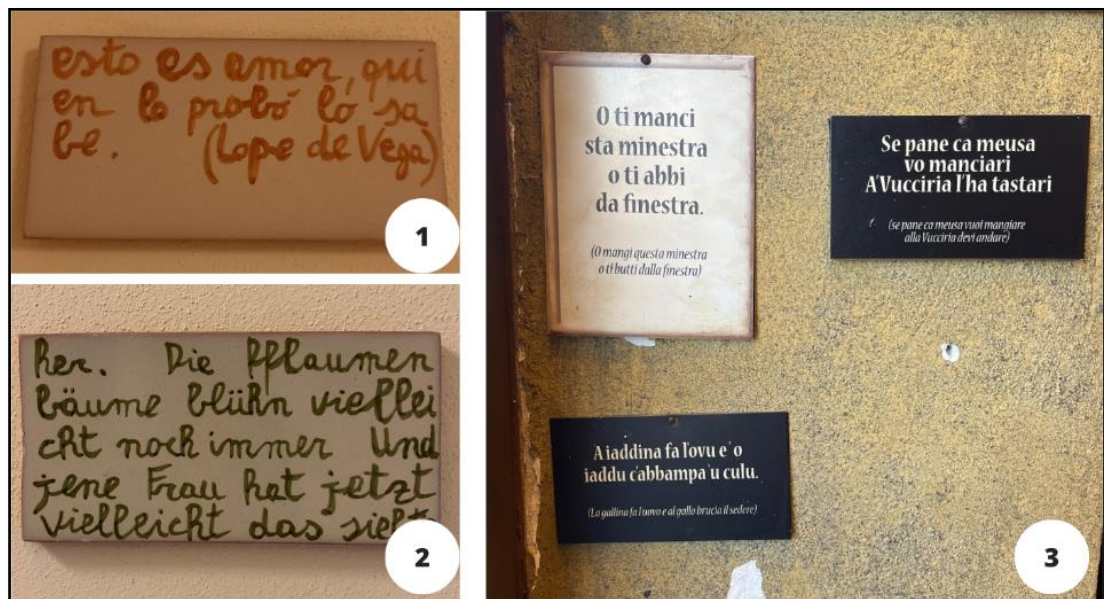 esto es amor, qui
en lo probó lo sa
be. (Lope de Vega)
1
her. Die Pflaumen
bäume blühn viellei
cht noch immer Und
jene Frau hat jetzt
vielleicht das siebt
2
O ti manci
sta minestra
o ti abbi
da finestra.
(O mangi questa minestra
o ti butti dalla finestra)
Se pane ca meusa
vo manciari
A'Vucciria l'ha tastari
(se pane ca meusa vuoi mangiare
alla Vucciria devi andare)
A iaddina fa l'ovu e 'o
iaddu c'abbampa 'u culu.
(La gallina fa l'uovo e al gallo brucia il sedere)
3